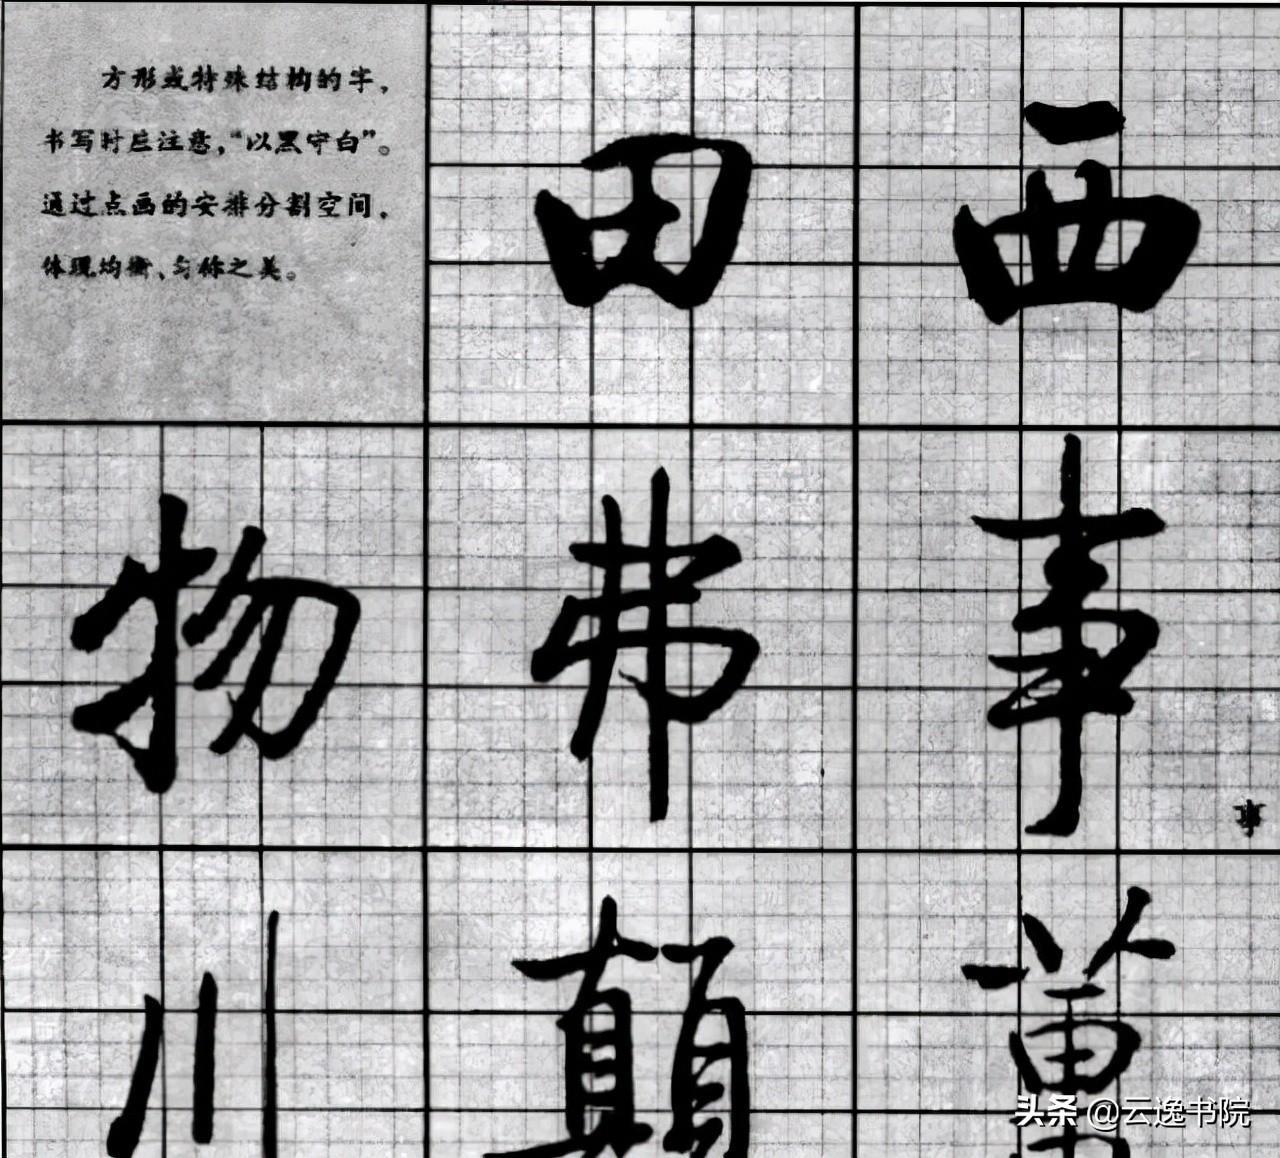 方形或特殊结构的字，
书写时应注意，“以黑守白”。
通过点画的安排分割空间，
体现均衡、匀称之美。
田 西
物 弗 事
事
川 顛 萬
头条 @云逸书院